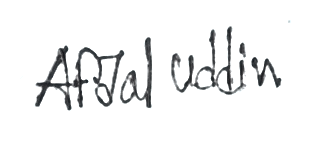 Afzal uddin